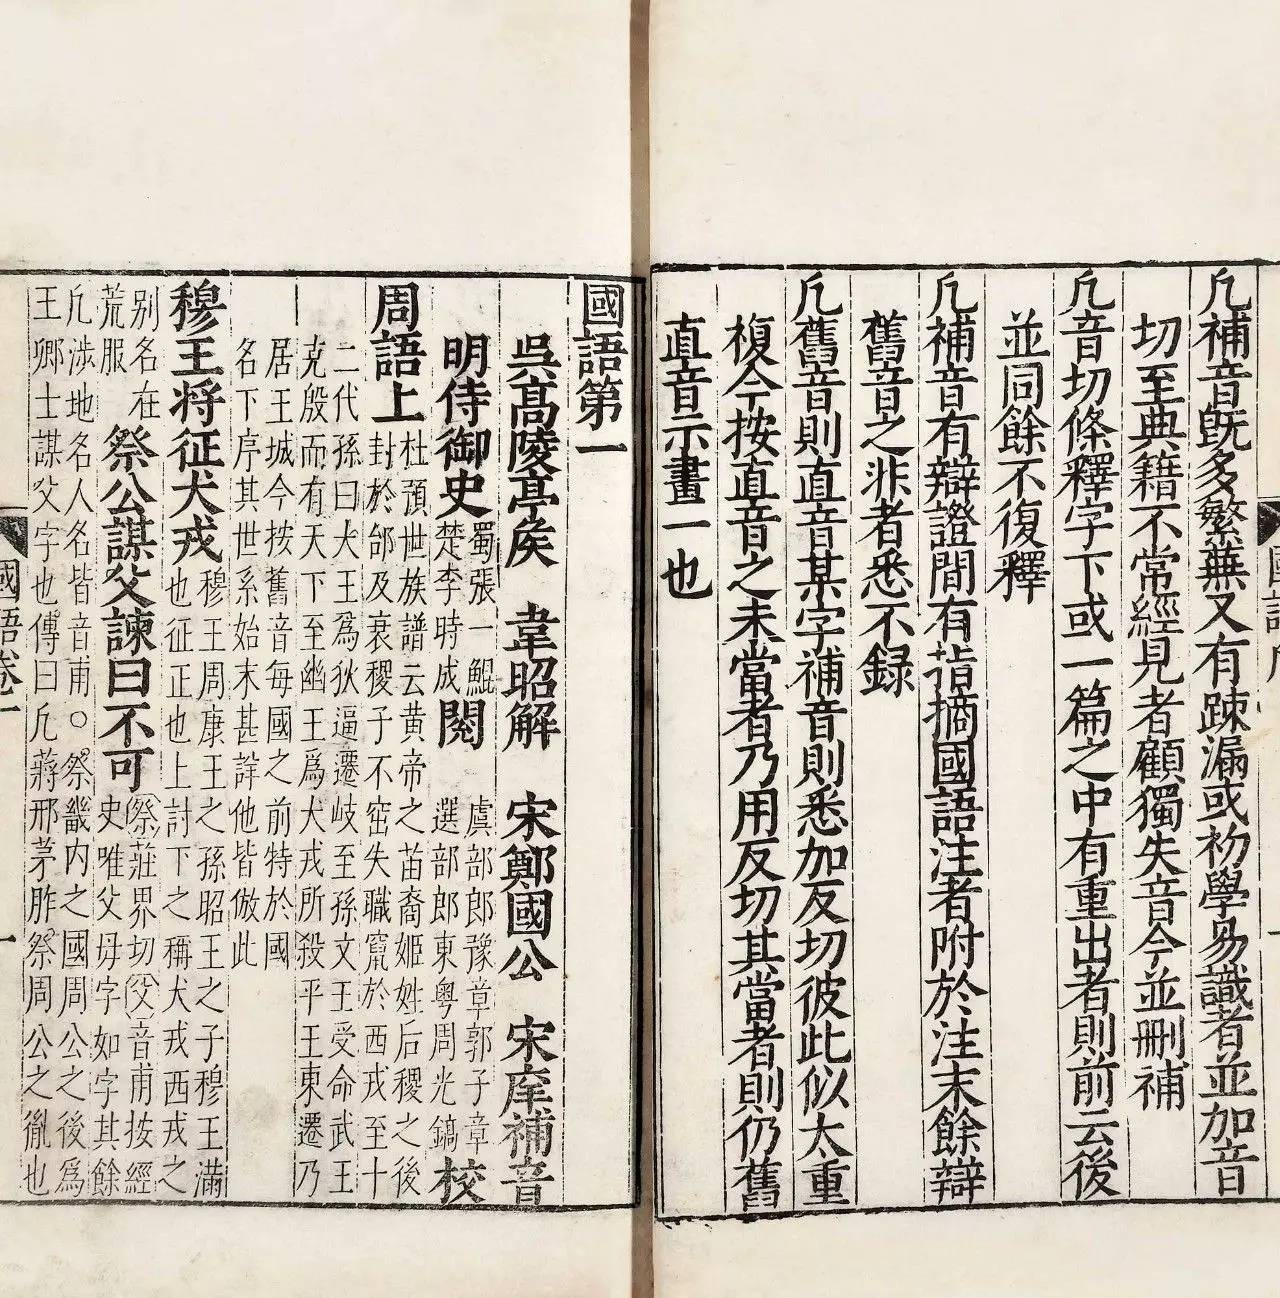 凢補音旣多繁蕪又有踈漏或初學昜識者並加音
切至典籍不常經見者顧獨失音今並刪補
凢音切條釋字下或一篇之中有重出者則前云後
並同餘不復釋
凢補音有辯證間有指摘國語注者附於注末餘辯
舊音之非者悉不録
凢舊音則直音某字補音則悉加反切彼此似太重
複今按直音之未當者乃用反切其當者則仍舊
直音示畫一也
國語第一
吳髙陵亭矦 韋昭解 宋鄭國公 宋庠補音
明侍御史 蜀張一鯤 楚李時成 閱 虞部郎豫章郭子章 選部郎東粤周光鎬 校
周語上 杜預世族譜云黄帝之苗裔姬姓后稷之後
封於邰及衰稷子不窋失職竄於西戎至十
二代孫曰大王爲狄逼遷岐至孫文王受命武王
克殷而有天下至幽王爲犬戎所殺平王東遷乃
居王城今按舊音每國之前特於國
名下序其世系始末甚詳他皆倣此
穆王将征犬戎 穆王周康王之孫昭王之子穆王滿
也征正也上討下之稱犬戎西戎之
别名在
荒服 祭公謀父諫曰不可 祭莊界切父音甫按經
史唯父母字如字其餘
凢涉地名人名皆音甫○祭畿内之國周公之後爲
王卿士謀父字也傳曰凢蔣邢茅胙祭周公之胤也
國語卷一
一